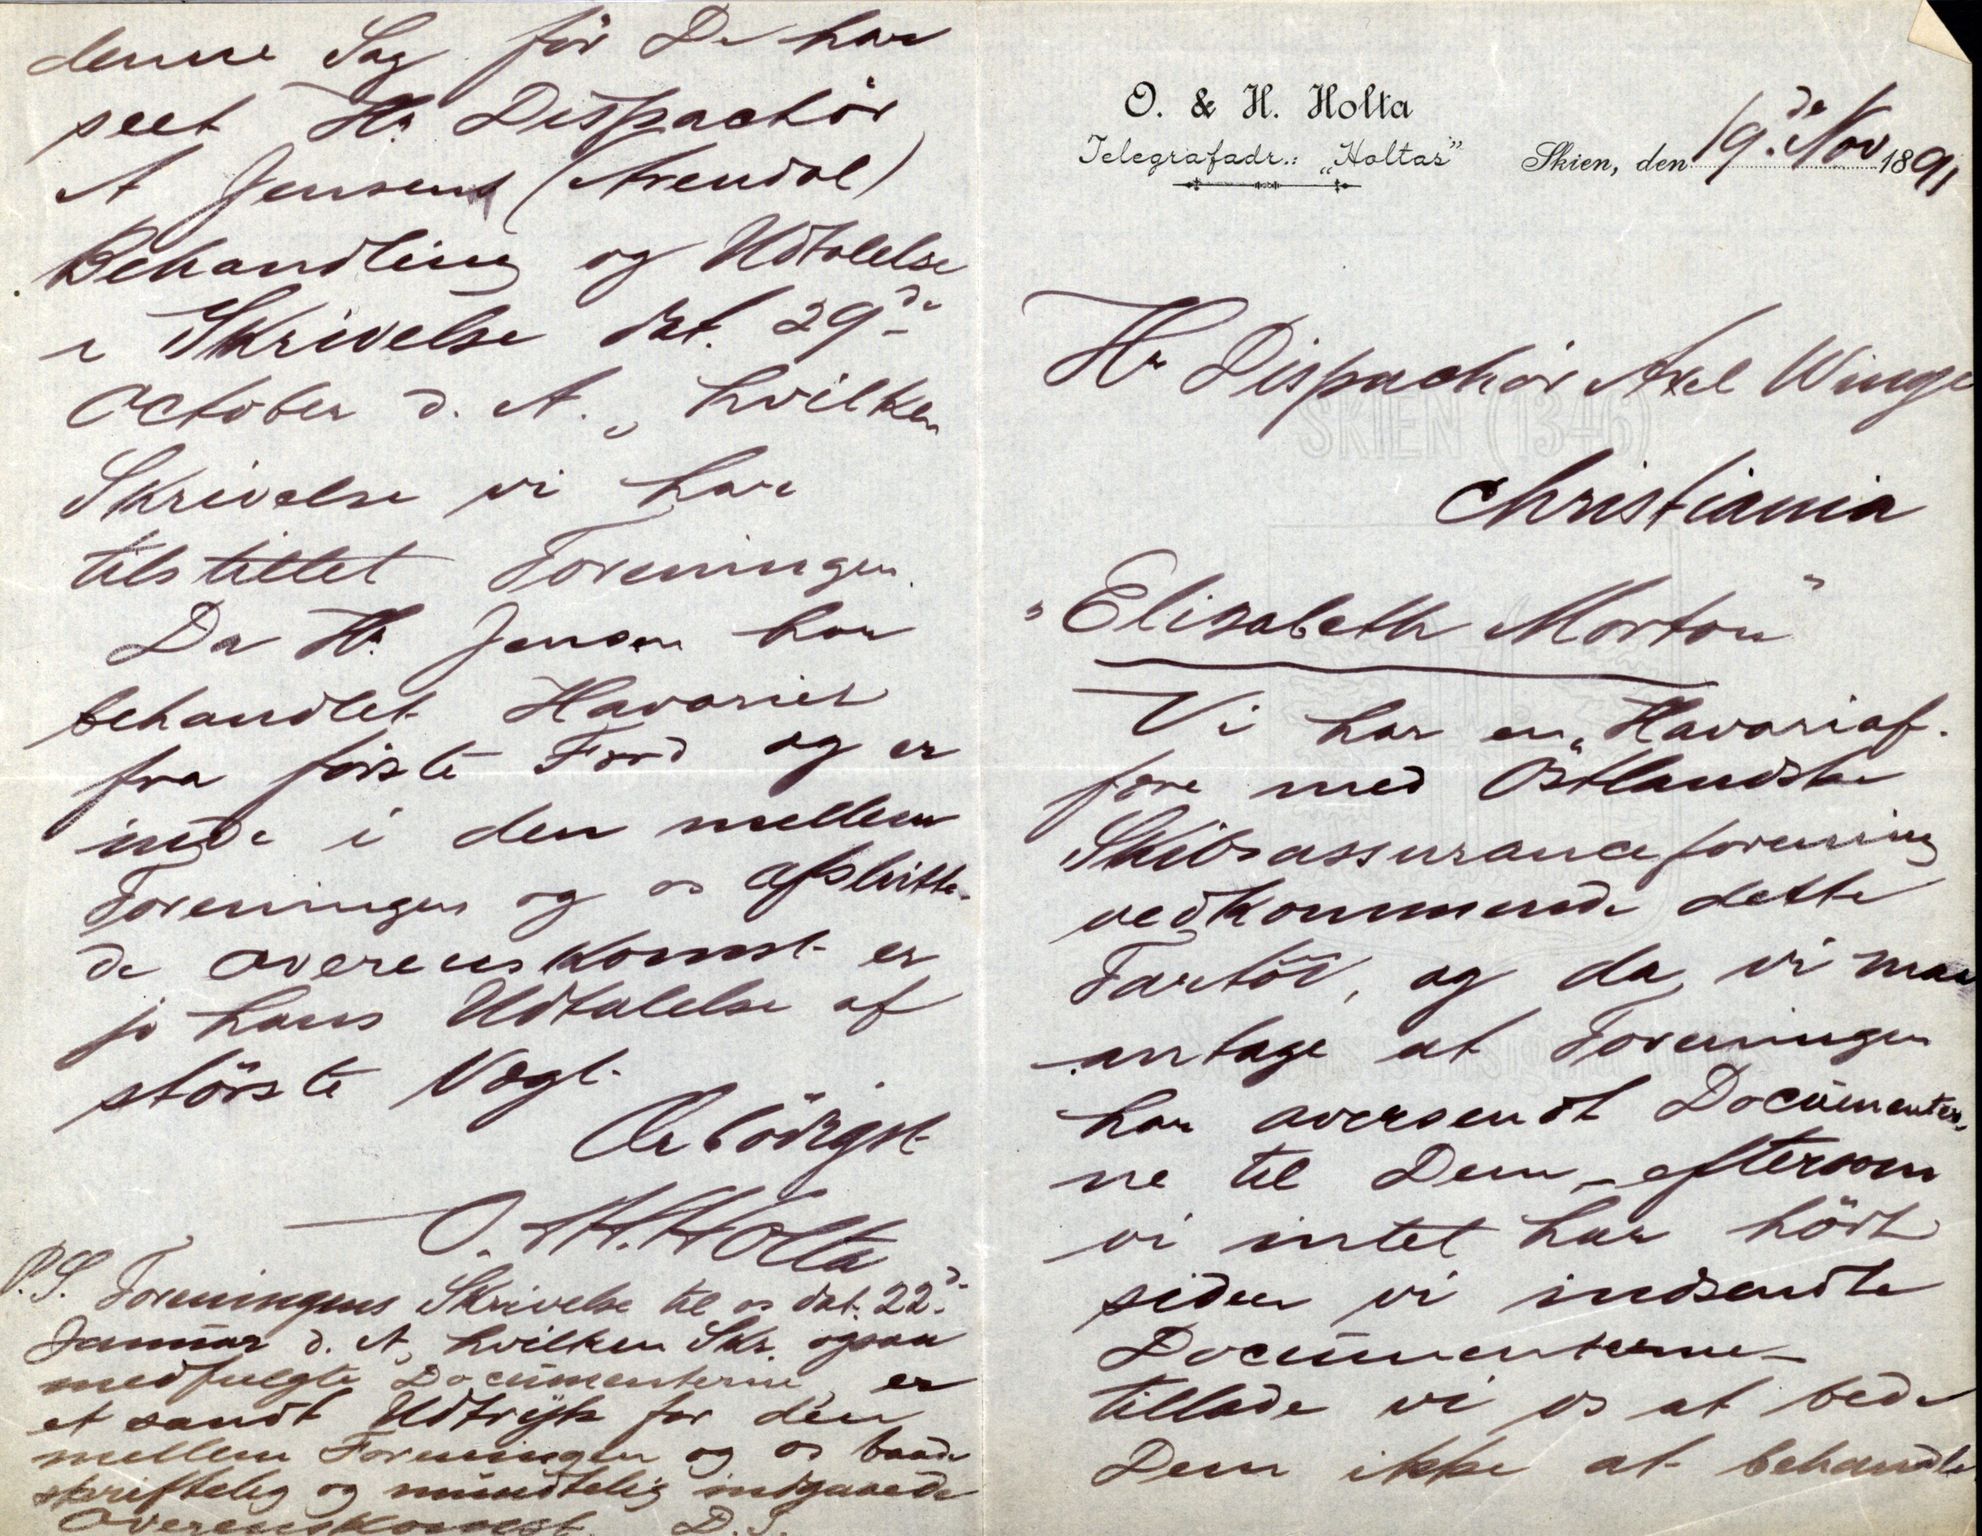 O. & H. Holta
Telegrafadr.: „Holtas"
Skien, den 19de Nov 1891
Hr Dispachör Axel Winge
Christiania
"Elisabeth Morton"
Vi har en Havariaf-
fære med Östlandske
Skibsassuranceforening
vedkommende dette
Fartöi, og da vi maa
antage at Foreningen
har oversendt Documenter-
ne til Dem – eftersom
vi intet har hört
siden vi indsendte
Documenterne –
tillade vi os at bede
Dem ikke at behandle
denne Sag för De har
seet Hr Dispachör
A Jensens (Arendal)
Behandling og Udtalelse
i Skrivelse dat. 29de
October d. A., hvilken
Skrivelse vi have
tilstillet Foreningen.
Da Hr Jensen har
behandlet Havariet
fra förste Færd og er
inde i den mellem
Foreningen og os afslutte-
de Overenskomst er
jo hans Udtalelse af
störste Vægt.
Ærbödigst
O. & H. Holta
P.S. Foreningens Skrivelse til os dat. 22d.
Januar d. A., hvilken Skr. ogsaa
medfulgte Documenterne, er
et sandt Udtryk for den
mellem Foreningen og os baade
skriftelig og mundtelig indgaaede
Overenskomst. D.S.
SKIEN (1346)